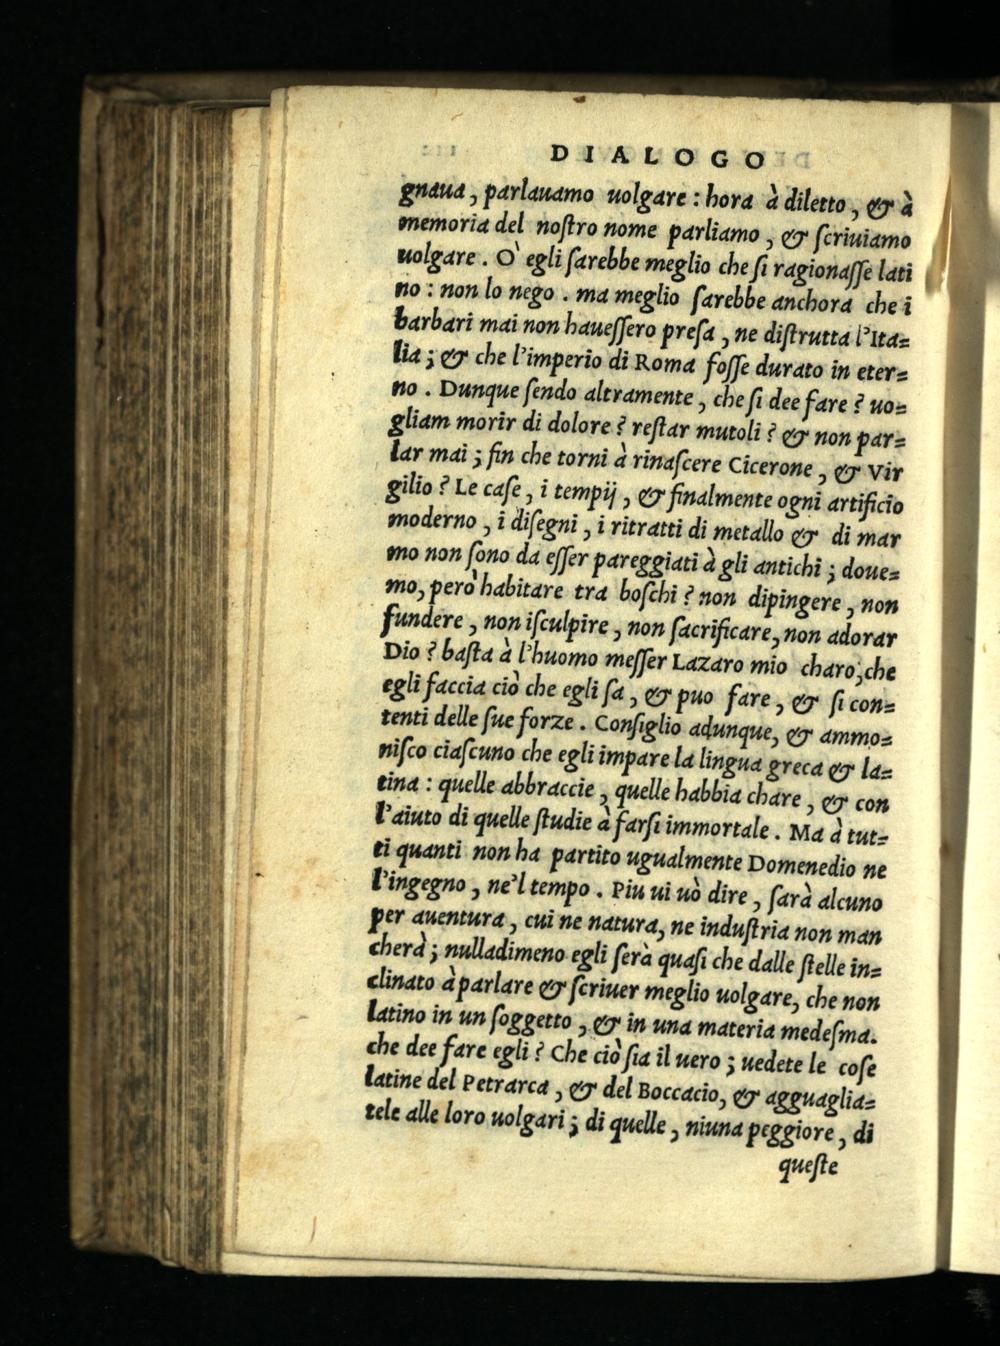 DIALOGO
gnaua, parlauamo uolgare : hora à diletto, & à
memoria del noſtro nome parliamo, & ſcriuiamo
uolgare. O' egli ſarebbe meglio che ſi ragionaſſe lati
no : non lo nego. ma meglio ſarebbe anchora che i
barbari mai non haueſſero preſa, ne diſtrutta l'Ita=
lia; & che l'imperio di Roma foſſe durato in eter=
no. Dunque ſendo altramente, che ſi dee fare? uo=
gliam morir di dolore? reſtar mutoli? & non par=
lar mai; fin che torni à rinaſcere Cicerone, & Vir
gilio? Le caſe, i tempij, & finalmente ogni artificio
moderno, i diſegni, i ritratti di metallo & di mar
mo non ſono da eſſer pareggiati à gli antichi; doue=
mo, però habitare tra boſchi? non dipingere, non
fundere, non iſculpire, non ſacrificare, non adorar
Dio? baſta à l'huomo meſſer Lazaro mio charo, che
egli faccia ciò che egli ſa, & puo fare, & ſi con=
tenti delle ſue forze. Conſiglio adunque, & ammo=
niſco ciaſcuno che egli impare la lingua greca & la=
tina : quelle abbraccie, quelle habbia chare, & con
l'aiuto di quelle ſtudie à farſi immortale. Ma à tut=
ti quanti non ha partito ugualmente Domenedio ne
l'ingegno, ne'l tempo. Piu ui uò dire, ſarà alcuno
per auentura, cui ne natura, ne induſtria non man
cherà; nulladimeno egli ſerà quaſi che dalle ſtelle in=
clinato à parlare & ſcriuer meglio uolgare, che non
latino in un ſoggetto, & in una materia medeſma.
che dee fare egli? Che ciò ſia il uero; uedete le coſe
latine del Petrarca, & del Boccacio, & agguaglia=
tele alle loro uolgari; di quelle, niuna peggiore, di
queſte